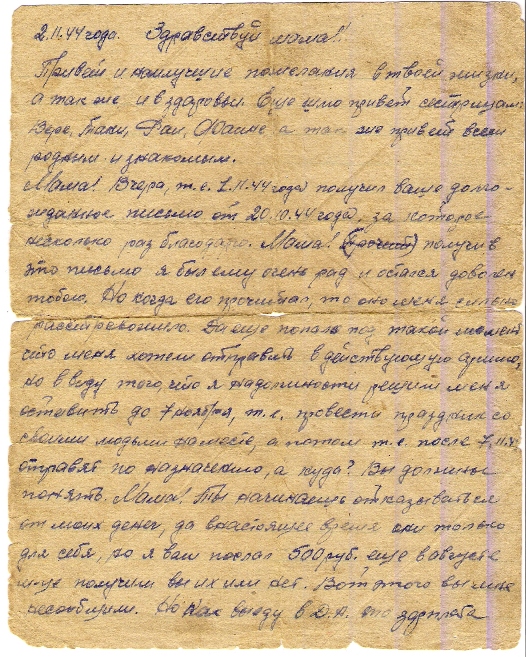 2.11.44 года. Здравствуй мама!
Привет и наилучшие пожелания в твоей жизни,
а так же и в здоровьи. Еще шлю привет сестрицам
Вере, Таки, Фаи, а так же привет всем
родным и знакомым.
Мама! Вчера, т.е. 1.11.44 года получил ваше долго-
жданное письмо от 20.10.44 года, за которое
несколько раз благодарю. Мама! получив
это письмо я был ему очень рад и остался доволен
тобою. Но когда его прочитал, то оно меня сильно
расстревожило. Да еще попало под такой момент
что меня хотели отправлять в действующую армию,
но в виду того, что я на должности решили меня
оставить до 7 ноября, т.е. провести праздник со
своими людьми на месте, а потом т.е. после 7.11.44
отправят по назначению, а куда? Вы должны
понять. Мама! Ты начинаешь отказываться
от моих денег, да внастоящее время они только
для себя, но я вам послал 500 руб. еще в августе
м-це получили вы их или нет. Вот этого вы мне
несообщили. Но как выеду в Д.А. то зарплата